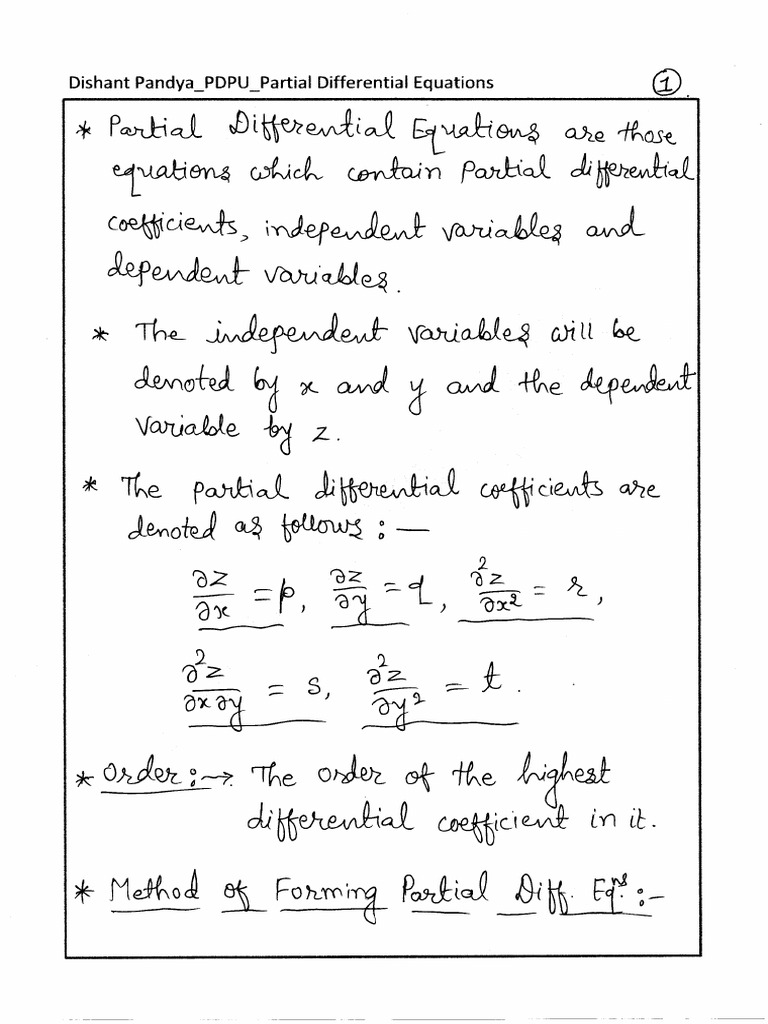 Dishant Pandya_PDPU_Partial Differential Equations
1
* Partial Differential Equations are those
equations which contain Partial differential
coefficients, independent variables and
dependent variables.
* The independent variables will be
denoted by x and y and the dependent
variable by z.
* The partial differential coefficients are
denoted as follows :—
∂z/∂x = p, ∂z/∂y = q, ∂²z/∂x² = r,
∂²z/∂x∂y = s, ∂²z/∂y² = t.
* Order:→ The order of the highest
differential coefficient in it.
* Method of Forming Partial Diff. Eqⁿˢ. :—